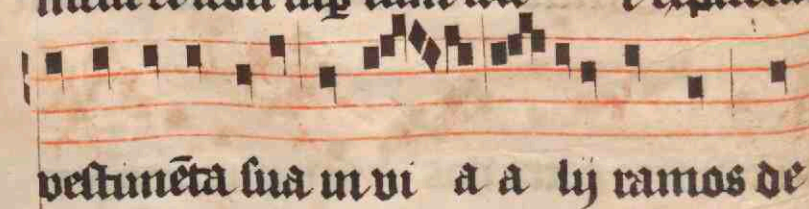 vestimēta sua in vi a a lij ramos de